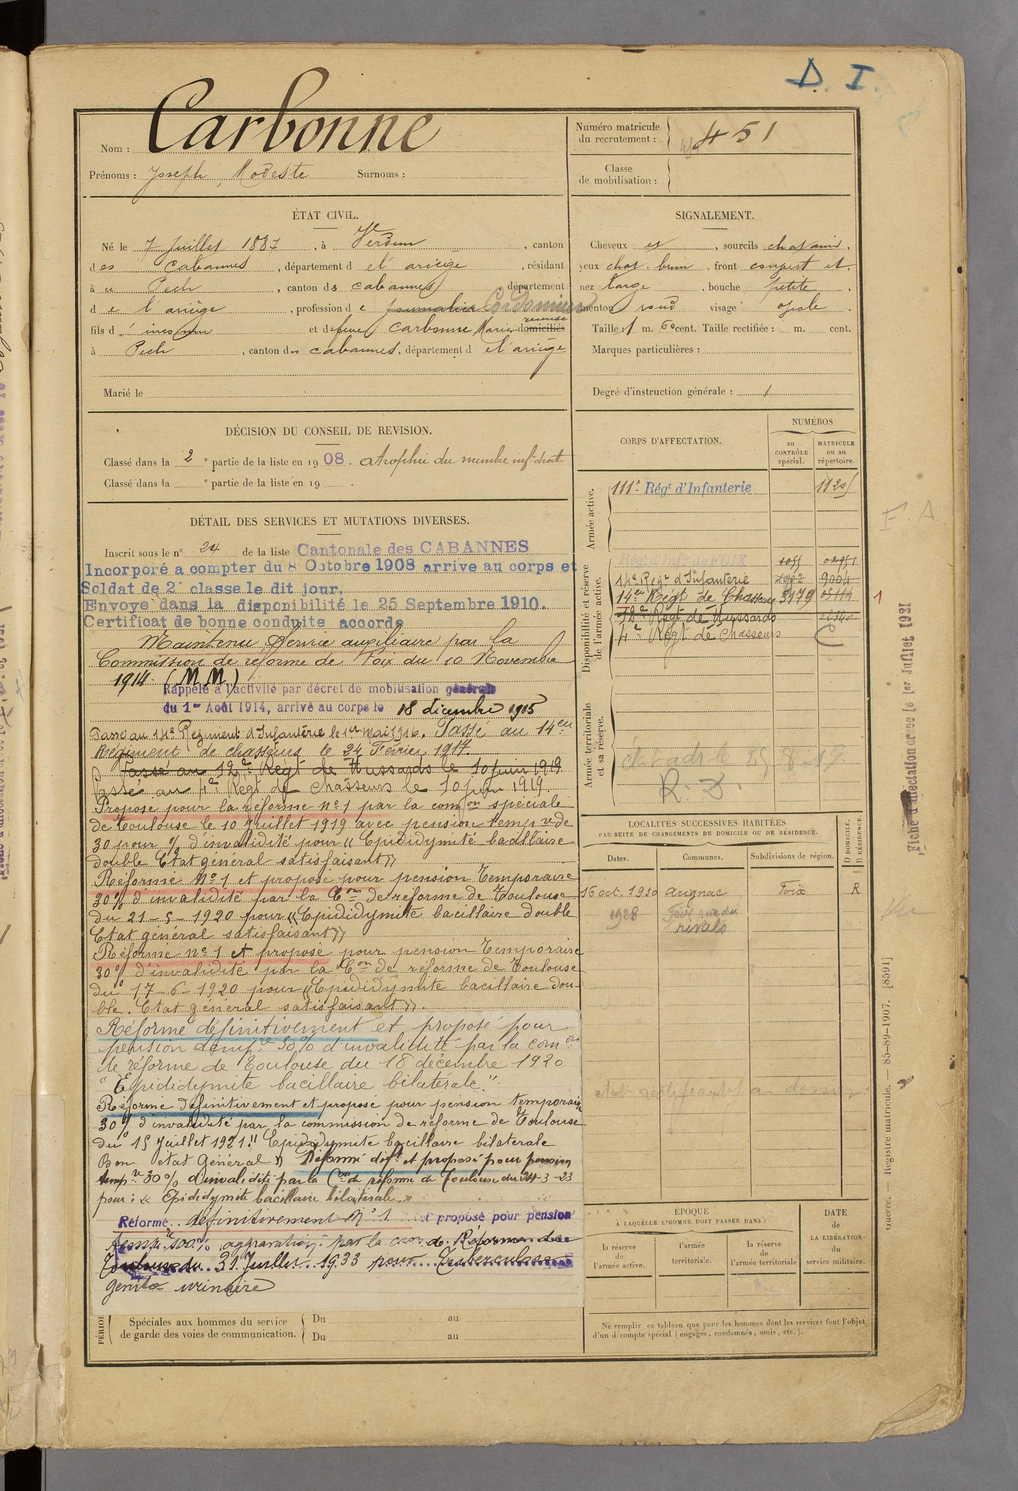 D. I.
Nom : Carbonne
Prénoms : Joseph Modeste Surnoms :
Numéro matricule du recrutement : 451
Classe de mobilisation :
ÉTAT CIVIL.
Né le 7 Juillet 1887, à Verdun, canton
des Cabannes, département de l'ariège, résidant
à Pech, canton des cabannes, département
de l'ariège, profession de Cordonnier
fils d' inconnu et de feue Carbonne Marie domiciliés
à Pech, canton des cabannes, département de l'ariège
Marié le
SIGNALEMENT.
Cheveux et , sourcils chatain.
yeux chat. brun, front couvert et.
nez large, bouche petite,
menton rond visage ovale.
Taille : 1 m. 60 cent. Taille rectifiée : m. cent.
Marques particulières :
Degré d'instruction générale : 1
DÉCISION DU CONSEIL DE REVISION.
Classé dans la 2e partie de la liste en 1908. atrophie du membre inf. droit
Classé dans la e partie de la liste en 19 .
DÉTAIL DES SERVICES ET MUTATIONS DIVERSES.
Inscrit sous le n° 24 de la liste Cantonale des CABANNES
Incorporé a compter du 8 Octobre 1908 arrive au corps et
Soldat de 2e classe le dit jour.
Envoye dans la disponibilité le 25 Septembre 1910.
Certificat de bonne conduite accordé
Maintenu Service auxiliaire par la
Commission de réforme de Foix du 10 Novembre
1914 (M M)
Rappelé à l'activité par décret de mobilisation générale
du 1er Août 1914, arrivé au corps le 18 décembre 1915
Passé au 14e Régiment d'Infanterie le 1er Mai 1916. Passé au 14eme
Régiment de chasseurs le 24 Février 1917.
Passé au 12e Regt de Hussards le 10 juin 1919
Passé au 4e Regt de Chasseurs le 10 juin 1919.
Proposé pour la réforme n° 1 par la comon spéciale
de Toulouse le 10 Juillet 1919 avec pension temp re de
30 pour % d'invalidité pour "Epididymite bacillaire
double Etat général satisfaisant"
Réformé N° 1 et proposé pour pension Temporaire
30% d'invalidité par la Con de réforme de Toulouse
du 21-5-1920 pour "Epididymite bacillaire double
Etat général satisfaisant"
Réformé n° 1 et proposé pour pension Temporaire
30% d'invalidité par la Con de réforme de Toulouse
du 17-6-1920 pour "Epididymite bacillaire dou-
ble. Etat général satisfaisant".
Réformé définitivement et proposé pour
pension temp.re 30% d'invalidité par la comon
de réforme de Toulouse du 18 décembre 1920
"Epididymite bacillaire bilatérale."
Réformé définitivement et proposé pour pension temporaire
30% d'invalidité par la commission de réforme de Toulouse
du 15 Juillet 1921 "Epididymite bacillaire bilatérale
Bon etat Général" Réformé deft et proposé pour pension
temp.re 30% d'invalidité par la Con de réforme de Toulouse du 24-3-23
pour : "Epididymite bacillaire bilatérale"
Réformé définitivement N° 1 et proposé pour pension
temp.re 100% aggravation par la con de Réforme de
Toulouse du 31 Juillet 1933 pour Tuberculose
génito urinaire
PÉRIO
Spéciales aux hommes du service de garde des voies de communication.
Du au
Du au
CORPS D'AFFECTATION.
NUMÉROS
au CONTRÔLE spécial.
MATRICULE ou au répertoire.
Armée active.
111e Régt d'Infanterie
Disponibilité et réserve de l'armée active.
14e Regt d'Infanterie 9004
14e Regt de Chasseurs 3179
12e Regt de Hussards
4e Regt de Chasseurs C
1
Armée territoriale et sa réserve.
R. D.
LOCALITÉS SUCCESSIVES HABITÉES
PAR SUITE DE CHANGEMENTS DE DOMICILE OU DE RÉSIDENCE.
Dates. Communes. Subdivisions de région. D DOMICILE. R RÉSIDENCE.
16 oct. 1920 Foix R
1928 Foix rue du
rivals
ÉPOQUE
À LAQUELLE L'HOMME DOIT PASSER DANS :
la réserve de l'armée active.
l'armée territoriale.
la réserve de l'armée territoriale
DATE de LA LIBÉRATION du service militaire.
Ne remplir ce tableau que pour les hommes dont les services font l'objet
d'un décompte spécial (engagés, condamnés, omis, etc.).
F. A
Fiche d'affectation créée le 1er Juillet 1921
Vu
Guerre. — Registre matricule. — 85-89-1907. [8591]